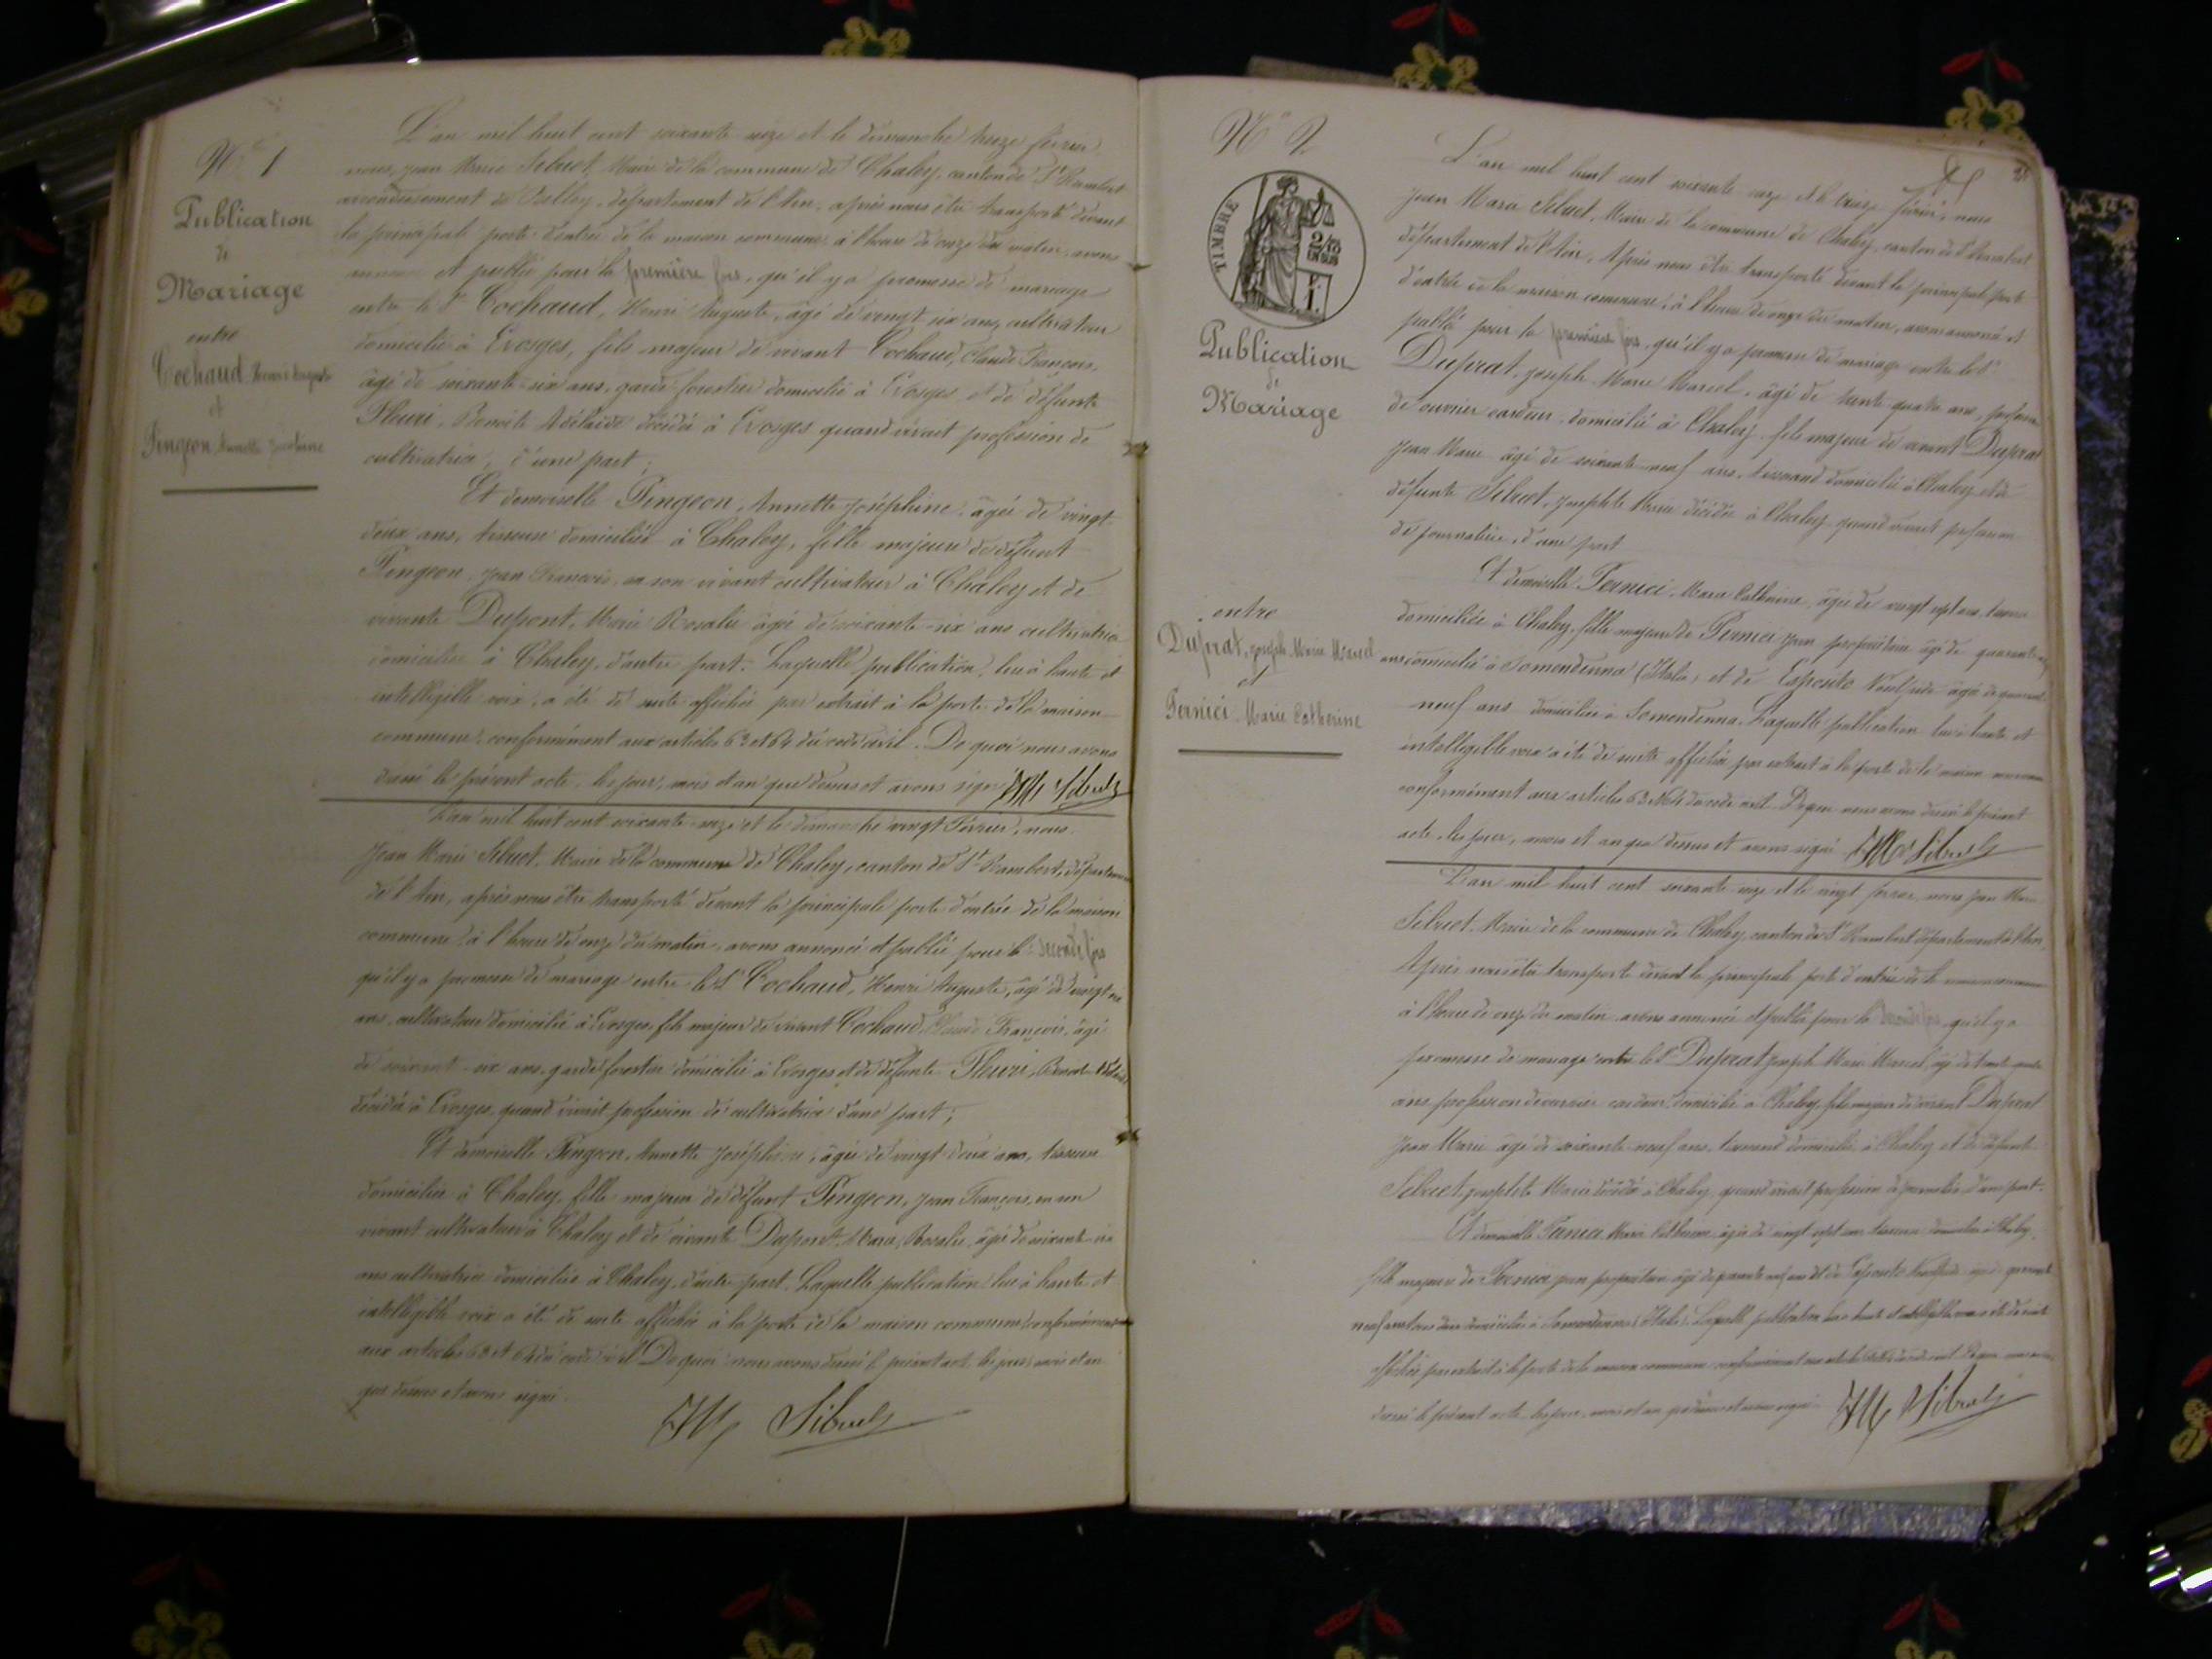 N° 1
Publication
de
Mariage
entre
Cochaud Henri Auguste
et
Pingeon Annette Joséphine
L'an mil huit cent soixante seize et le dimanche treize février
nous, Jean Marie Sibuet, Maire de la commune de Chaley, canton de St Rambert
arrondissement de Belley, département de l'Ain, après nous être transporté devant
la principale porte d'entrée de la maison commune à l'heure de onze du matin, avons
annoncé et publié pour la première fois, qu'il y a promesse de mariage
entre le Sr Cochaud, Henri Auguste, âgé de vingt six ans, cultivateur
domicilié à Evosges, fils majeur de vivant Cochaud, Claude François,
âgé de soixante-six ans, garde forestier domicilié à Evosges et de défunte
Fleuri, Benoîte Adélaïde décédée à Evosges quand vivait profession de
cultivatrice, d'une part;
Et demoiselle Pingeon, Annette Joséphine, âgée de vingt-
deux ans, tisseuse domiciliée à Chaley, fille majeure de défunt
Pingeon, Jean François, en son vivant cultivateur à Chaley et de
vivante Dupont, Marie Rosalie âgée de soixante-six ans cultivatrice
domiciliée à Chaley, d'autre part. Laquelle publication, lue à haute et
intelligible voix, a été de suite affichée par extrait à la porte de la maison
commune, conformément aux articles 63 et 64 du code civil. De quoi nous avons
dressé le présent acte, les jour, mois et an que dessus et avons signé JM Sibuet
L'an mil huit cent soixante-seize et le dimanche vingt Février, nous
Jean Marie Sibuet, Maire de la commune de Chaley, canton de St Rambert, département
de l'Ain, après nous être transporté devant la principale porte d'entrée de la maison
commune à l'heure de onze du matin, avons annoncé et publié pour la seconde fois
qu'il y a promesse de mariage entre le Sr Cochaud, Henri Auguste, âgé de vingt six
ans, cultivateur domicilié à Evosges, fils majeur de vivant Cochaud, Claude François, âgé
de soixante-six ans, garde forestier domicilié à Evosges et de défunte Fleuri, Benoîte Adélaïde
décédée à Evosges, quand vivait profession de cultivatrice d'une part;
Et demoiselle Pingeon, Annette Joséphine, âgée de vingt-deux ans, tisseuse
domiciliée à Chaley, fille majeure de défunt Pingeon, Jean François, en son
vivant cultivateur à Chaley et de vivante Dupont, Marie Rosalie, âgée de soixante-six
ans cultivatrice domiciliée à Chaley, d'autre part. Laquelle publication lue à haute et
intelligible voix a été de suite affichée à la porte de la maison commune, conformément
aux articles 63 et 64 du code civil. De quoi nous avons dressé le présent acte, les jour, mois et an
que dessus et avons signé.
JM Sibuet
N° 2
TIMBRE
2/10
EN SUS
Publication
de
Mariage
entre
Duprat, Joseph Marie Marcel
et
Pernici Marie Catherine
L'an mil huit cent soixante seize et le treize février, nous
Jean Marie Sibuet, Maire de la commune de Chaley, canton de St Rambert
département de l'Ain, Après nous être transporté devant la principale porte
d'entrée de la maison commune, à l'heure de onze du matin, avons annoncé et
publié pour la première fois, qu'il y a promesse de mariage entre le Sr
Duprat, Joseph Marie Marcel, âgé de trente quatre ans, profession
de ouvrier cardeur, domicilié à Chaley, fils majeur de vivant Duprat
Jean Marie âgé de soixante-neuf ans, tisserand domicilié à Chaley et de
défunte Sibuet, Josephte Marie décédée à Chaley quand vivait profession
de journalière, d'une part
Et demoiselle Pernici, Marie Catherine, âgée de vingt sept ans, tisseuse
domiciliée à Chaley, fille majeure de Pernici Jean propriétaire âgé de quarante
ans domicilié à Somendenna (Italie) et de Esposito âgée de quarante
neuf ans domiciliée à Somendenna. Laquelle publication lue à haute et
intelligible voix a été de suite affichée par extrait à la porte de la maison commune
conformément aux articles 63 et 64 du code civil. De quoi nous avons dressé le présent
acte, les jour, mois et an que dessus et avons signé JM Sibuet
L'an mil huit cent soixante seize et le vingt février, nous Jean Marie
Sibuet, Maire de la commune de Chaley, canton de St Rambert département de l'Ain,
Après nous être transporté devant la principale porte d'entrée de la maison commune
à l'heure de onze du matin avons annoncé et publié pour la qu'il y a
promesse de mariage entre le Sr Duprat Joseph Marie Marcel, âgé de trente quatre
ans profession de ouvrier cardeur, domicilié à Chaley, fils majeur de vivant Duprat
Jean Marie âgé de soixante-neuf ans, tisserand domicilié à Chaley et de défunte
Sibuet, Josephte Marie décédée à Chaley, quand vivait profession de journalière d'une part.
Et demoiselle Pernici Marie Catherine âgée de vingt sept ans tisseuse domiciliée à Chaley,
fille majeure de Pernici Jean propriétaire âgé de quarante et de Esposito quarante
neuf ans tous deux domiciliés à Somendenna (Italie). Laquelle publication lue à haute et intelligible voix a été de suite
affichée par extrait à la porte de la maison commune conformément aux articles 63 et 64 du code civil. De quoi nous avons
dressé le présent acte les jour, mois et an que dessus et avons signé. JM Sibuet